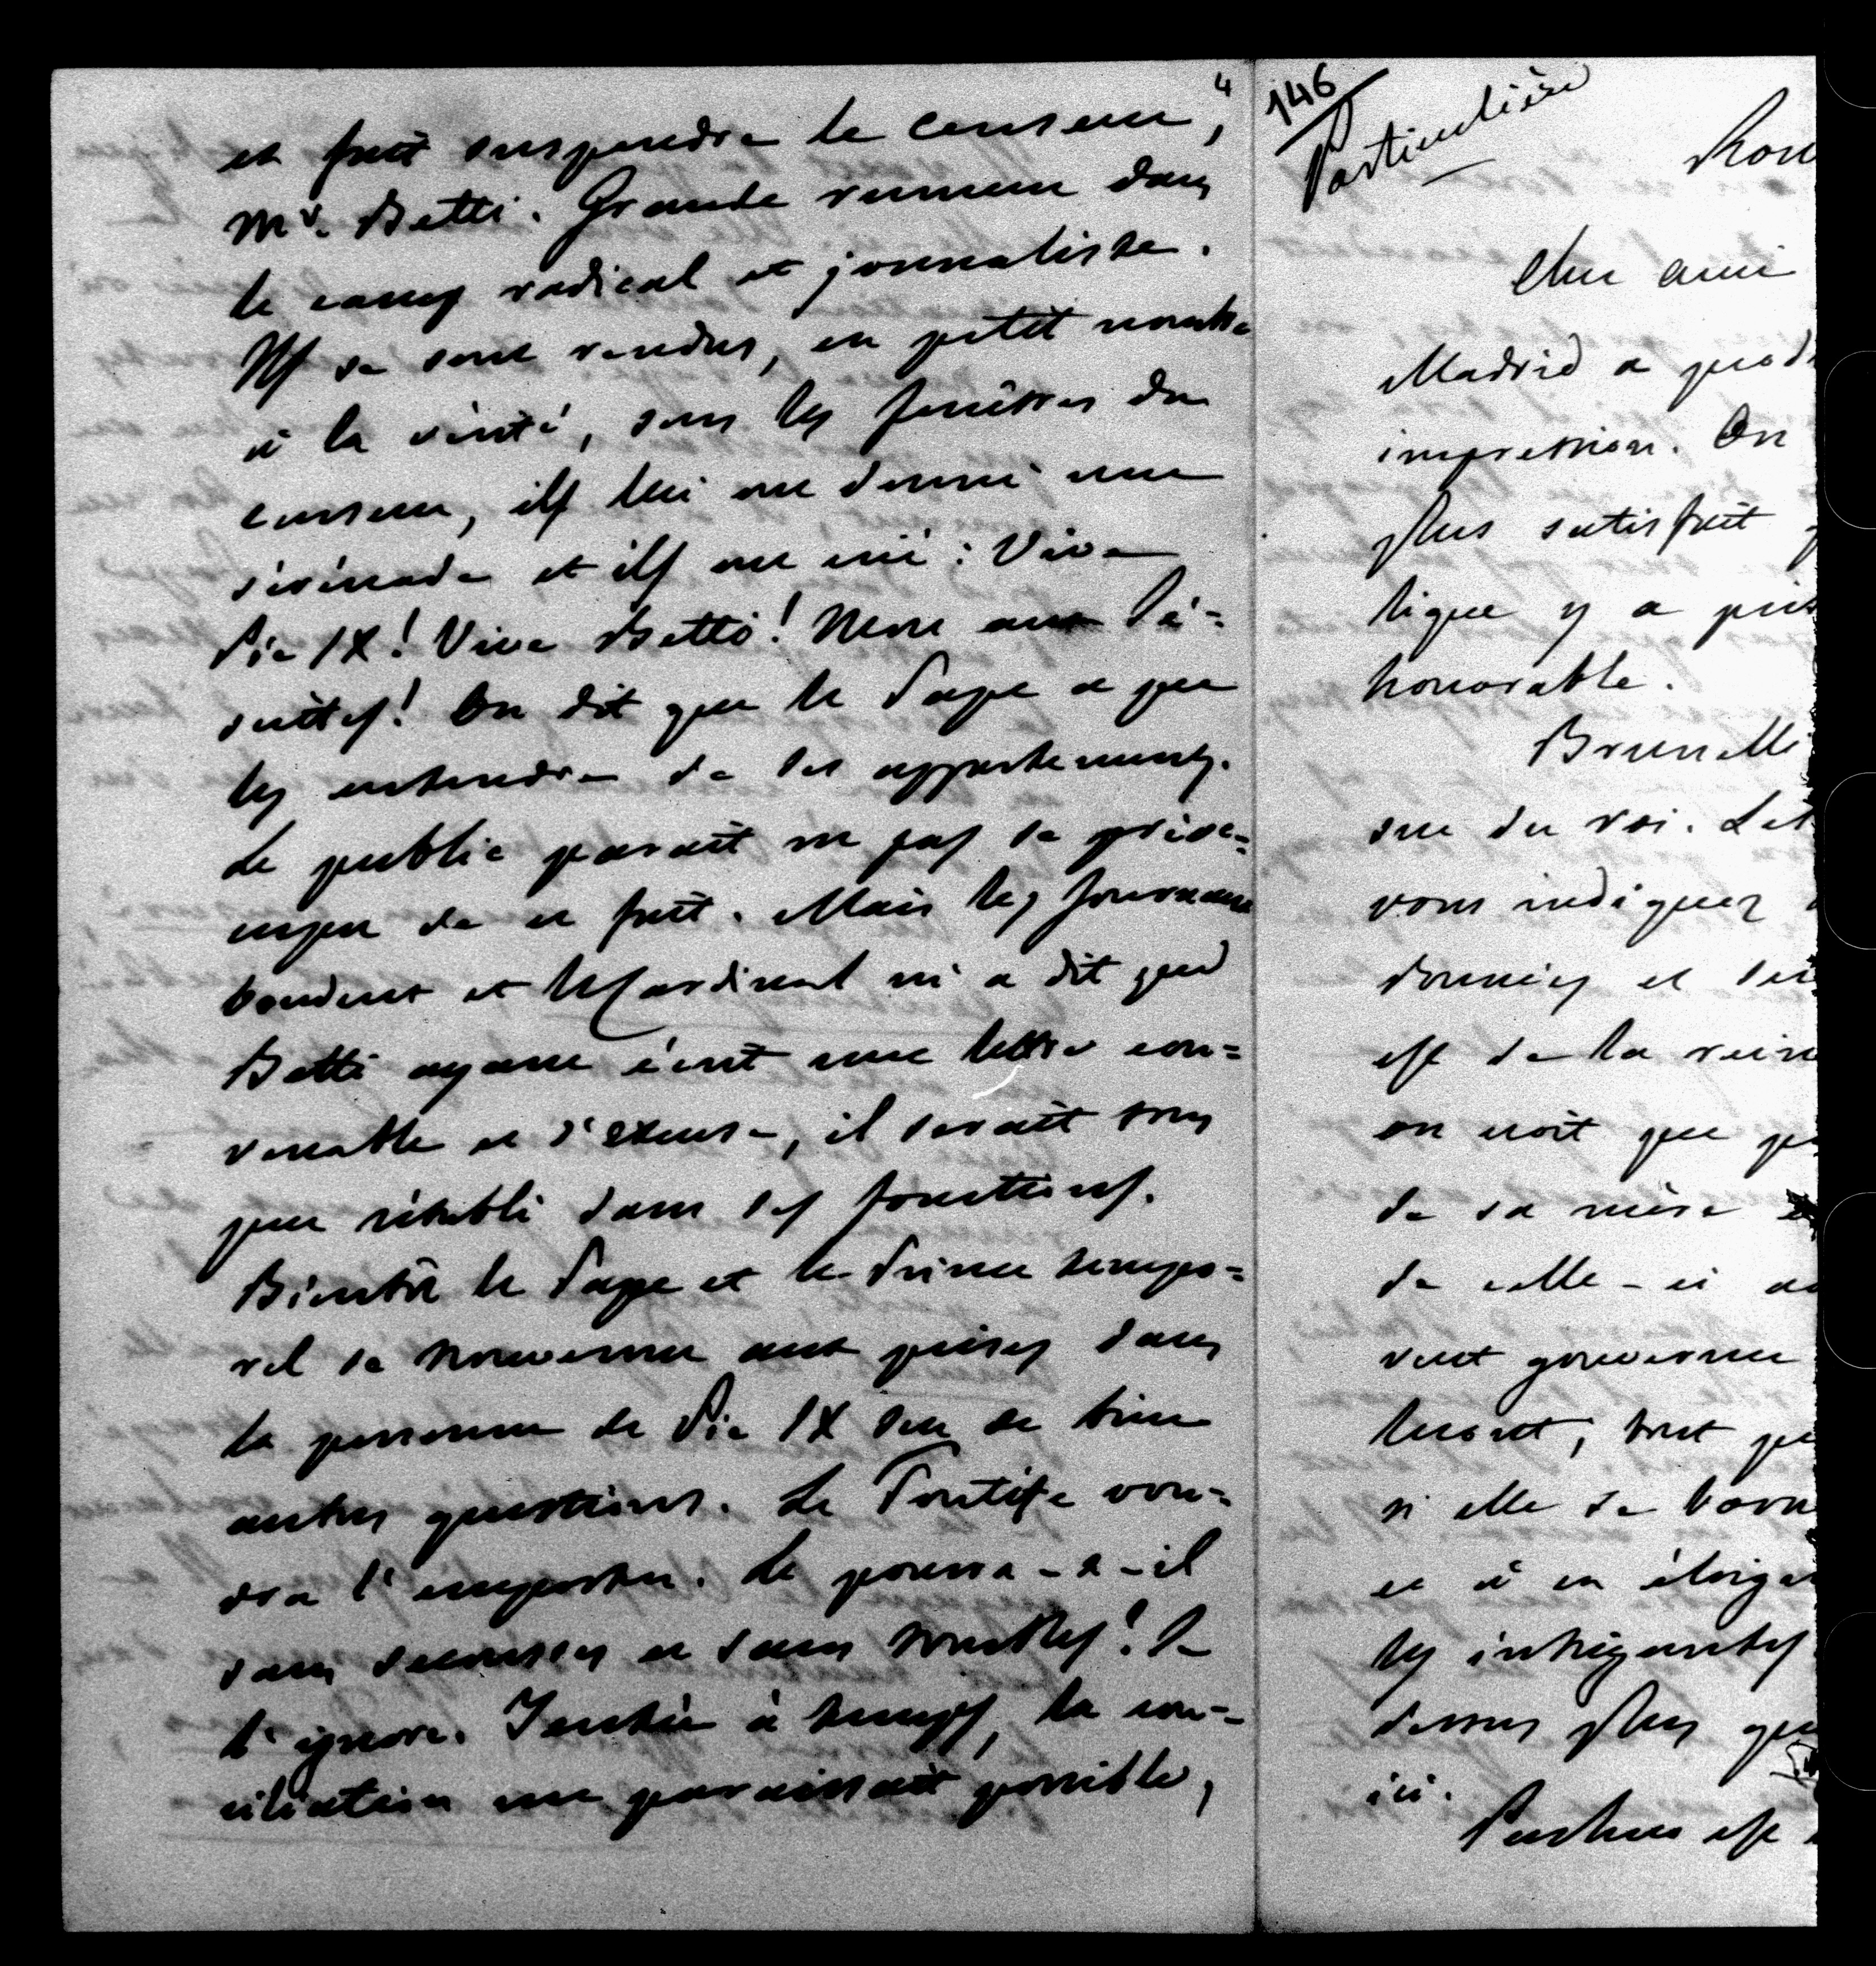 4
et fait suspendre le censeur,
Mr. Betti. Grande rumeur dans
le camp radical et journaliste.
Ils se sont rendus, en petit nombre
à la vérité, sous les fenêtres du
censeur, ils lui ont donné une
sérénade et ils ont crié : Vive
Pie IX! Vive Betti! Mort aux Jé=
suites! On dit que le Pape a pu
les entendre de ses appartements.
Le public paraît ne pas se préoc=
cuper de ce fait. Mais les journaux
boudent et le Cardinal m'a dit que
Betti ayant écrit une lettre con=
venable et d'excuse, il serait sous
peu rétabli dans ses fonctions.
Bientôt le Pape et le Prince tempo=
rel se trouveront aux prises dans
la personne de Pie IX sur de bien
autres questions. Le Pontife vou=
dra l'emporter. Le pourra-t-il
sans secousses et sans troubles? Je
l'ignore. Tentée à temps, la con=
ciliation me paraissait possible,
146
Particulière
Rom
Cher ami
Madrid a prod
impression. On
plus satisfait
tique y a pris
honorable.
Brunelli
sue du roi. Let
vous indiquez
données et
est de la reine
on croit que
de sa mère
de celle-ci
veut gouverner
tout
si elle se borne
et à en éloigner
les intrigantes
dessus plus que
ici.
est